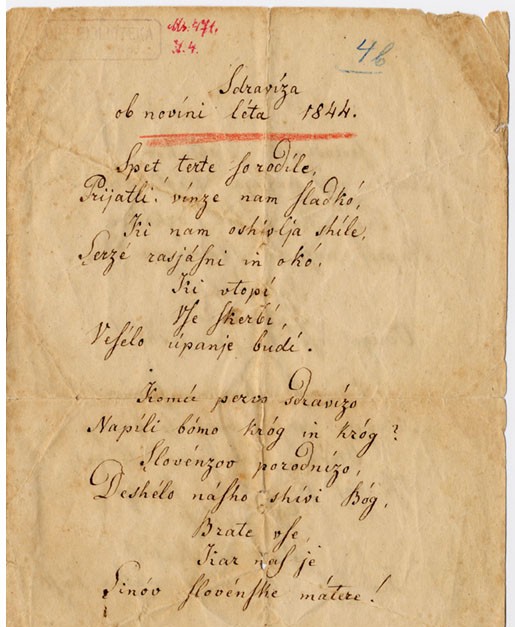 BIBLIOTEKA
Ms. 471.
N. 4.
4b
Sdravíza
ob novíni léta 1844.
Spet terte so rodíle,
Prijatli! vínze nam sladkó,
Ki nam oshivlja shíle,
Serzé rasjásni in okó,
Ki vtopí
Vse skerbí,
Vesélo úpanje budí.
Komú pervo sdravízo
Napíli bómo króg in króg?
Slovénzov porodnízo,
Deshélo násho shívi Bóg,
Brate vse,
Kar nas je
Sinóv slovénske mátere!